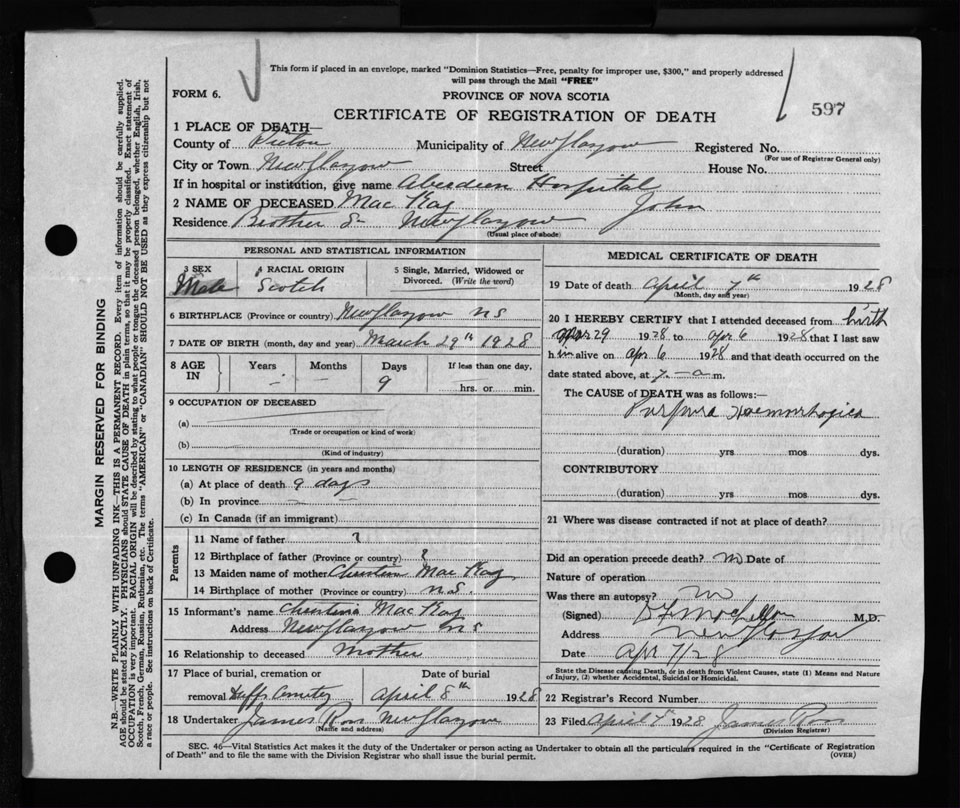 This form if placed in an envelope, marked "Dominion Statistics—Free, penalty for improper use, $300," and properly addressed
will pass through the Mail "FREE"
FORM 6.
PROVINCE OF NOVA SCOTIA
597
CERTIFICATE OF REGISTRATION OF DEATH
1 PLACE OF DEATH—
County of Pictou Municipality of New Glasgow Registered No.
(For use of Registrar General only)
City or Town New Glasgow Street House No.
If in hospital or institution, give name Aberdeen Hospital
2 NAME OF DECEASED Mac Kay John
Residence Brother St New Glasgow
(Usual place of abode)
PERSONAL AND STATISTICAL INFORMATION
3 SEX RACIAL ORIGIN 5 Single, Married, Widowed or
Divorced. (Write the word)
Male Scotch
6 BIRTHPLACE (Province or country) New Glasgow N S
7 DATE OF BIRTH (month, day and year) March 29th 1928
8 AGE IN Years Months Days If less than one day,
— — 9 hrs. or min.
9 OCCUPATION OF DECEASED
(a)
(Trade or occupation or kind of work)
(b)
(Kind of industry)
10 LENGTH OF RESIDENCE (in years and months)
(a) At place of death 9 days
(b) In province — —
(c) In Canada (if an immigrant)
Parents
11 Name of father ?
12 Birthplace of father (Province or country) ?
13 Maiden name of mother Christina Mac Kay
14 Birthplace of mother (Province or country) N.S.
15 Informant's name Christina Mac Kay
Address New Glasgow N S
16 Relationship to deceased Mother
17 Place of burial, cremation or Date of burial
removal Duffs Cemetery April 8th 1928
18 Undertaker James Ross New Glasgow
(Name and address)
MEDICAL CERTIFICATE OF DEATH
19 Date of death April 7th 1928
(Month, day and year)
20 I HEREBY CERTIFY that I attended deceased from birth
Mar 29 1928 to Apr 6 1928 that I last saw
h im alive on Apr 6 1928 and that death occurred on the
date stated above, at 7 — a m.
The CAUSE of DEATH was as follows:—
Purpura Haemorrhagica
(duration) yrs mos dys.
CONTRIBUTORY
(duration) yrs mos dys.
21 Where was disease contracted if not at place of death?
Did an operation precede death? no Date of
Nature of operation
Was there an autopsy? no
(Signed) M.D.
Address New Glasgow
Date Apr 7/28
State the Disease causing Death, or in death from Violent Causes, state (1) Means and Nature
of Injury, (2) whether Accidental, Suicidal or Homicidal.
22 Registrar's Record Number
23 Filed April 1928 James Ross
(Division Registrar)
SEC. 46—Vital Statistics Act makes it the duty of the Undertaker or person acting as Undertaker to obtain all the particulars required in the "Certificate of Registration
of Death" and to file the same with the Division Registrar who shall issue the burial permit. (OVER)
MARGIN RESERVED FOR BINDING
N.B.—WRITE PLAINLY WITH UNFADING INK—THIS IS A PERMANENT RECORD. Every item of information should be carefully supplied.
AGE should be stated EXACTLY. PHYSICIANS should STATE CAUSE OF DEATH in plain terms, so that it may be properly classified. Exact statement of
OCCUPATION is very important. RACIAL ORIGIN will be described by stating to what people or tongue the deceased person belonged, whether English, Irish,
Scotch, French, German, Russian, Ruthenian, etc. The terms "AMERICAN" or "CANADIAN" SHOULD NOT BE USED as they express citizenship but not
a race or people. See instructions on back of Certificate.